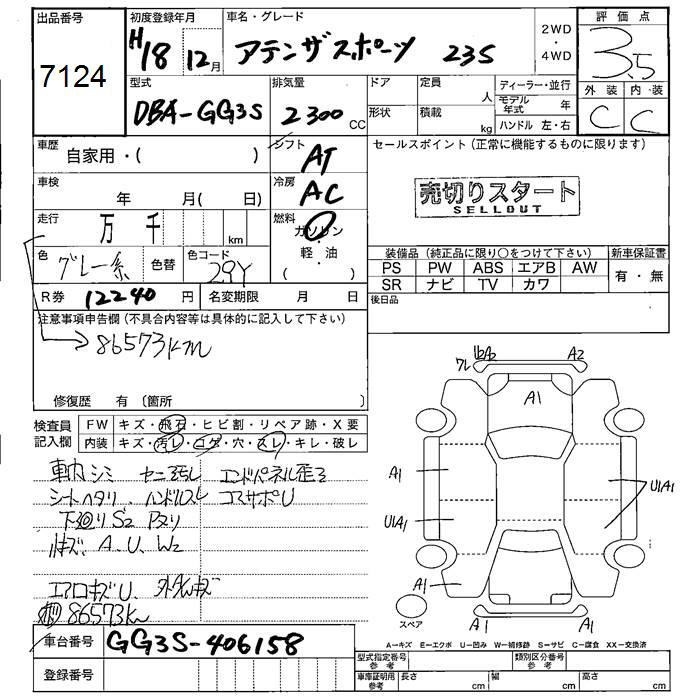 出品番号
7124
初度登録年月
H18 12月
車名・グレード
アテンザスポーツ 23S
2WD
・
4WD
評価点
3.5
外装 内装
C C
型式
DBA-GG3S
排気量
2300 CC
ドア
形状
定員
人
積載
kg
ディーラー・並行
モデル年式 年
ハンドル 左・右
車歴
自家用・( )
シフト
AT
セールスポイント (正常に機能するものに限ります)
売切りスタート
SELLOUT
車検
年 月( 日)
冷房
AC
走行
万 千 km
燃料
ガソリン
・
軽・油
( )
色
グレー系
色替
色コード
29Y
装備品 (純正品に限り○をつけて下さい)
新車保証書
PS PW ABS エアB AW
SR ナビ TV カワ
有・無
R券 12240 円
名変期限 月 日
後日品
注意事項申告欄 (不具合内容等は具体的に記入して下さい)
→86573km
修復歴 有 (箇所 )
検査員
記入欄
FW キズ・飛石・ヒビ割・リペア跡・X要
内装 キズ・汚レ・コゲ・穴・スレ・キレ・破レ
シミ
シートヘタリ ハンドルスレ
エンドパネル歪ミ
コアサポU
下廻りS2 Pヌリ
キズ、A、U、W2
エアロキズU、
86573km
ワレ
A2
A1
A1
U1A1
U1A1
A1
A1
A1
スペア
A-キズ E-エクボ U-凹み W-補修跡 S-サビ C-腐食 XX-交換済
車台番号
GG3S-406158
登録番号
型式指定番号
参考
類別区分番号
参考
車庫証明用
参考
長さ cm
幅 cm
高さ cm